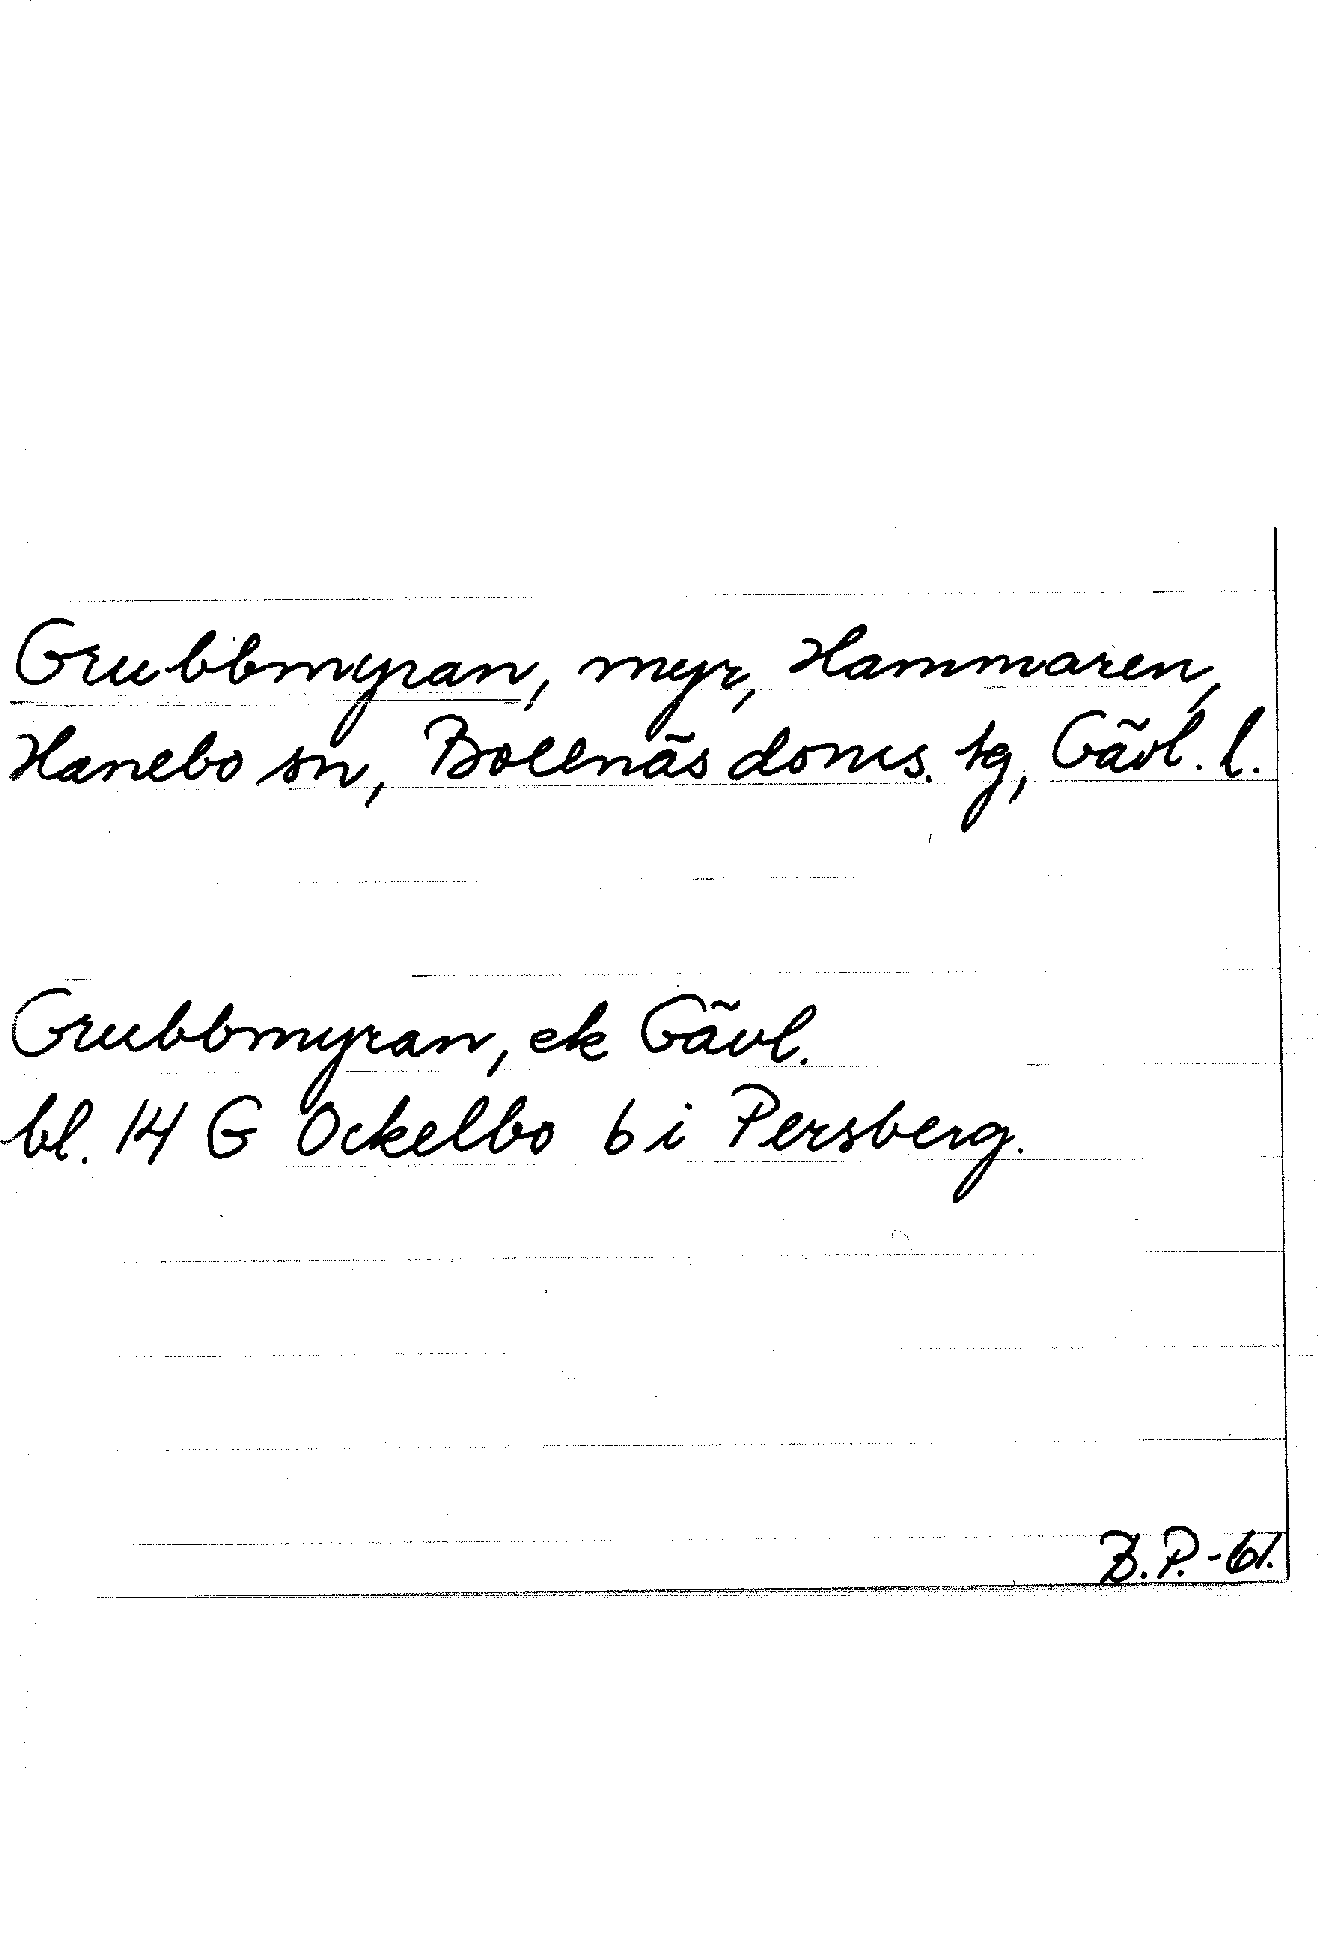 Grubbmyran, myr, Hammaren,
Hanebo sn, Bollnäs doms. tg, Gävl. l.
Grubbmyran, ek Gävl.
bl. 14 G Ockelbo 6 i Persberg.
B.P.-61.